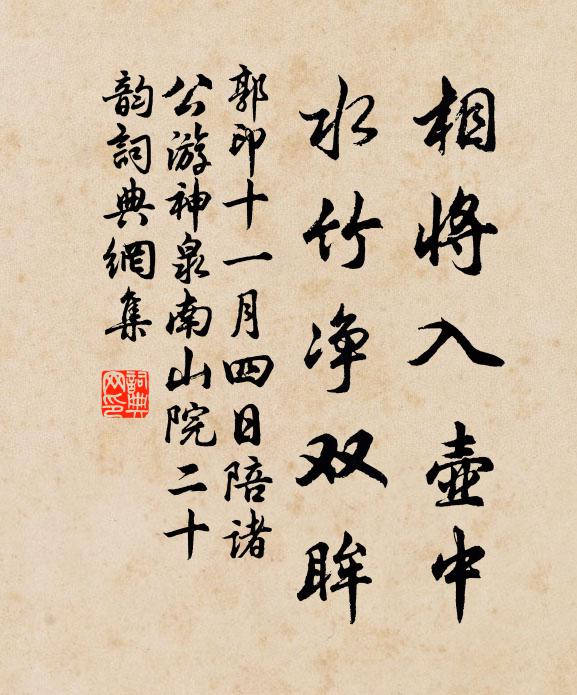 相将入壶中
水竹净双眸
郭印十一月四日陪诸
公游神泉南山院二十
韵詞典網集
詞典网印